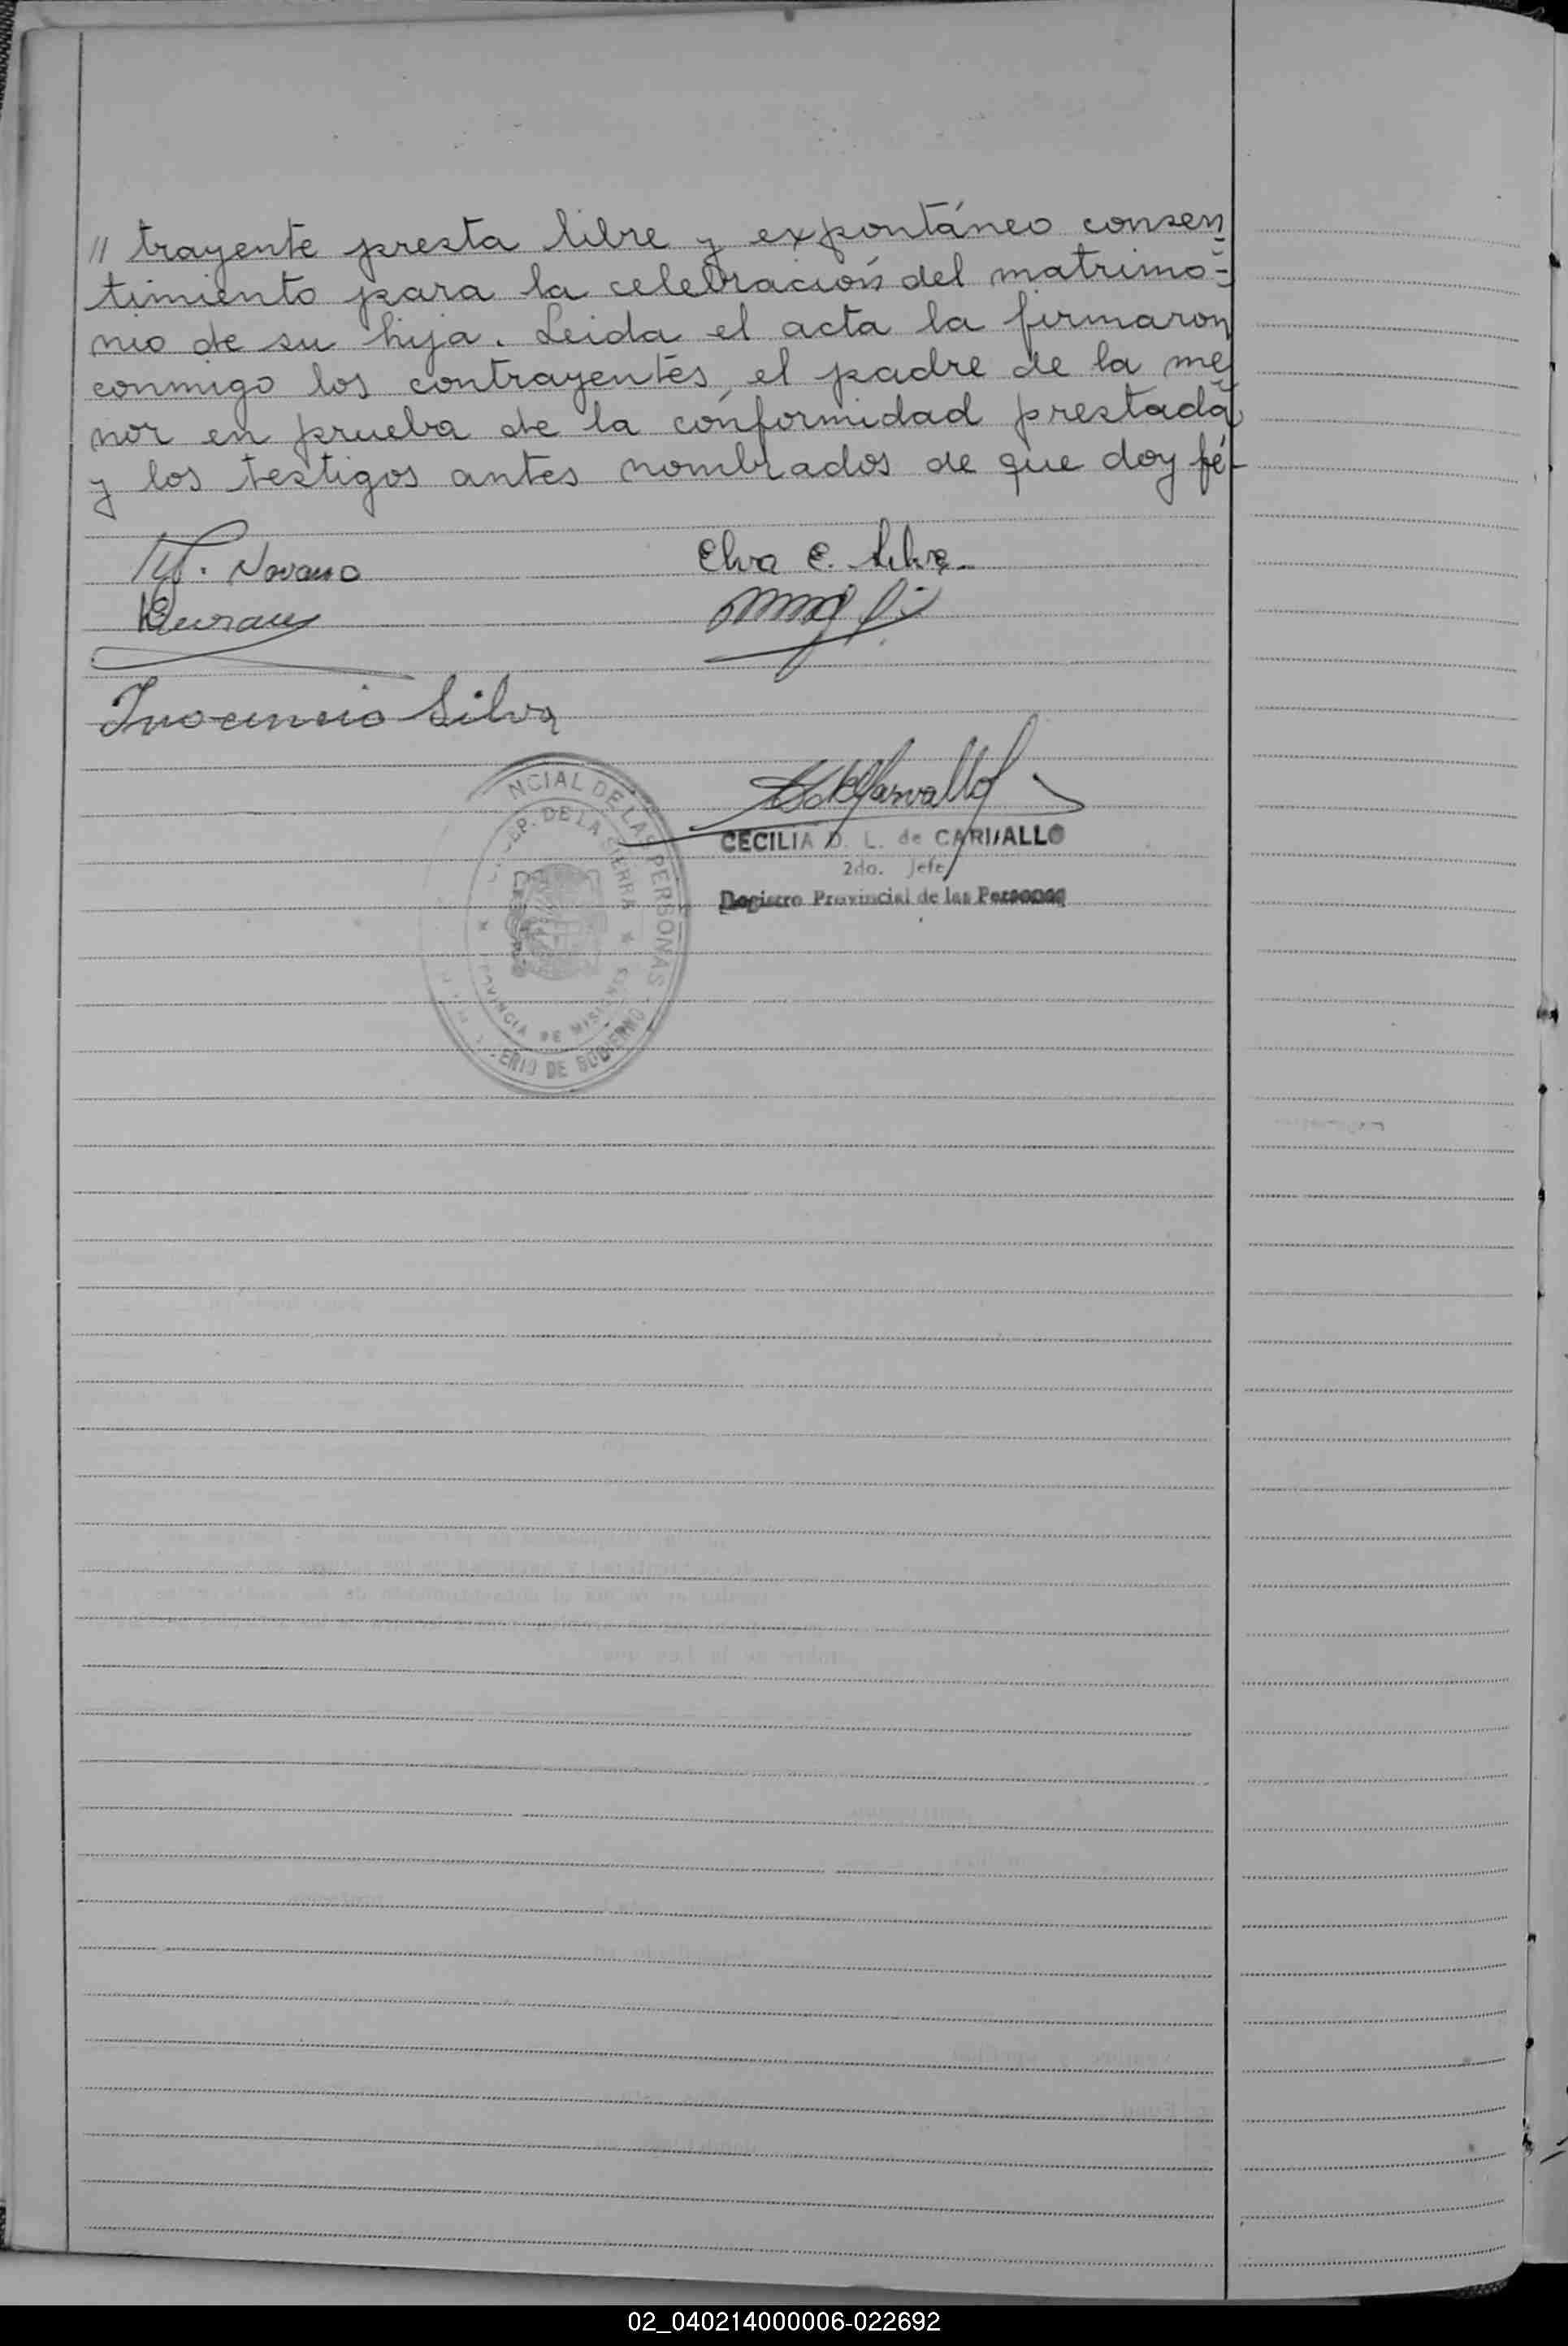 // trayente presta libre y expontáneo consen
timiento para la celebración del matrimo=
nio de su hija. Leida el acta la firmaron
conmigo los contrayentes, el padre de la me
nor en prueba de la cónformidad prestada
y los testigos antes nombrados de que doy fé-
Elva E. Silva.
Inocencio Silva
NCIAL DE LAS PERSONAS
DEP. DE LA SIERRA
PROVINCIA DE MISIONES
ERIO DE GOBIERNO
CECILIA D. L. de CARVALLO
2do. Jefe
Registro Provincial de las Personas
02_040214000006-022692